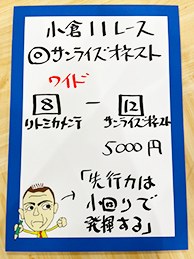 小倉11レース
◎サンライズオネスト
ワイド
8 ー 12
リトミカメンテ サンライズオネスト
5000円
「先行力は
小回りで
発揮する」